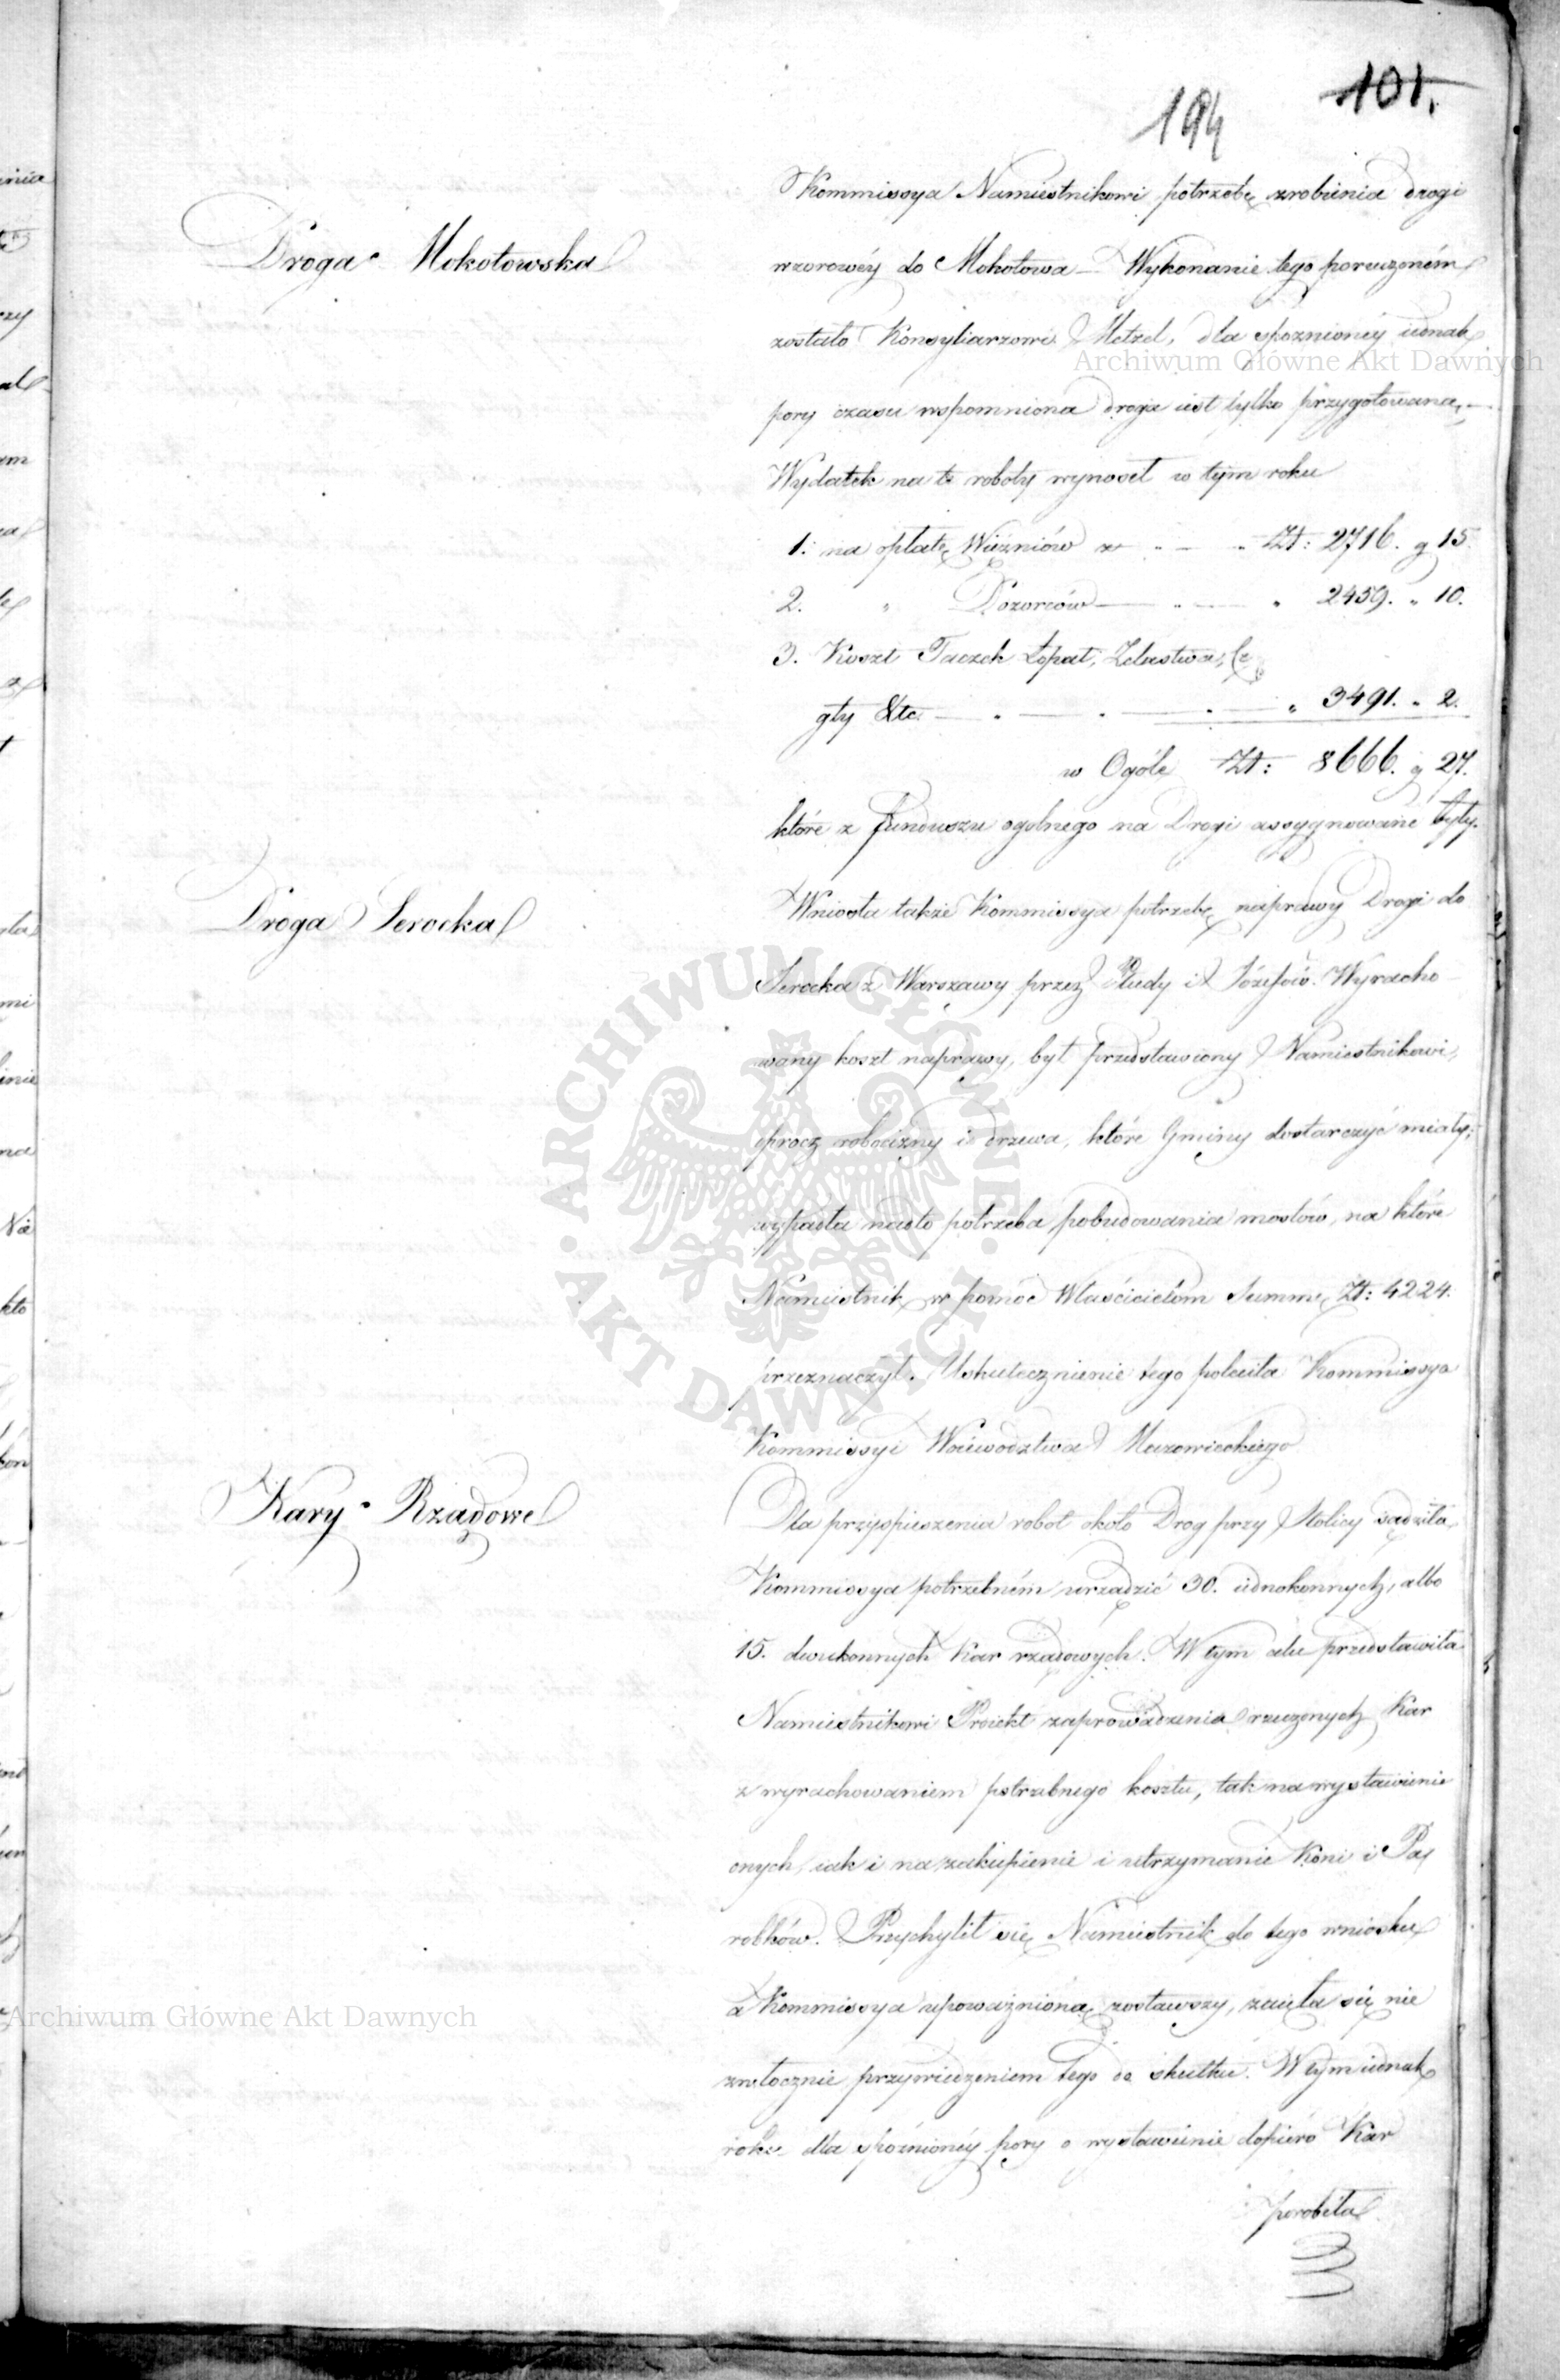 194
101.
Kommissya Namiestnikowi potrzebę zrobienia drogi
Droga Mokotowska
wzorowéy do Mokotowa – Wykonanie tego poruczoném
zostało Konsyliarzowi Metzel, dla spoznionéy iednak
Archiwum Główne Akt Dawnych
pory czasu wspomniona droga iest tylko przygotowana, –
Wydatek na te roboty wynosił w tym roku
1. na opłatę Więzniów Zł: 2716. g 15.
2. " Dozorców " 2459. " 10.
3. Koszt Taczek Łopat, Zelastwa, Ce
gły &tc. " 3491. " 2.
w Ogóle Zł: 8666. g 27.
które z funduszu ogolnego na Drogi assygnowane były.
Droga Serocka
Wniosła także Kommissya potrzebę naprawy Drogi do
Serocka z Warszawy przez Płudy i Józefów. Wyracho
wany koszt naprawy, był przedstawiony Namiestnikowi,
oprocz robocizny i drzewa, które Gminy dostarczyć miały;
wypadła nadto potrzeba pobudowania mostów, na które
Namiestnik w pomoc Właścicielom Summę Zł: 4224.
przeznaczył. Uskutecznienie tego poleciła Kommissya
Kommissyi Woiewodztwa Mazowieckiego
ARCHIWUM GŁÓWNE
AKT DAWNYCH
Kary Rządowe
Dla przyspieszenia robot około Drog przy Stolicy sądziła
Kommissya potrzebném urządzić 30. iednokonnych, albo
15. dwukonnych Kar rządowych. W tym celu przedstawiła
Namiestnikowi Proiekt zaprowadzenia rzeczonych Kar
z wyrachowaniem potrzebnego kosztu, tak na wystawienie
onych, iak i na zakupienie i utrzymanie Koni i Pa
robków. Przychylił się Namiestnik do tego wniosku
a Kommissya upoważnioną zostawszy, zaięła się nie
Archiwum Główne Akt Dawnych
zwłocznie przywiedzeniem tego do skutku. W tym iednak
roku dla spóźnionéy pory o wystawienie dopiéro Kar
porobiła